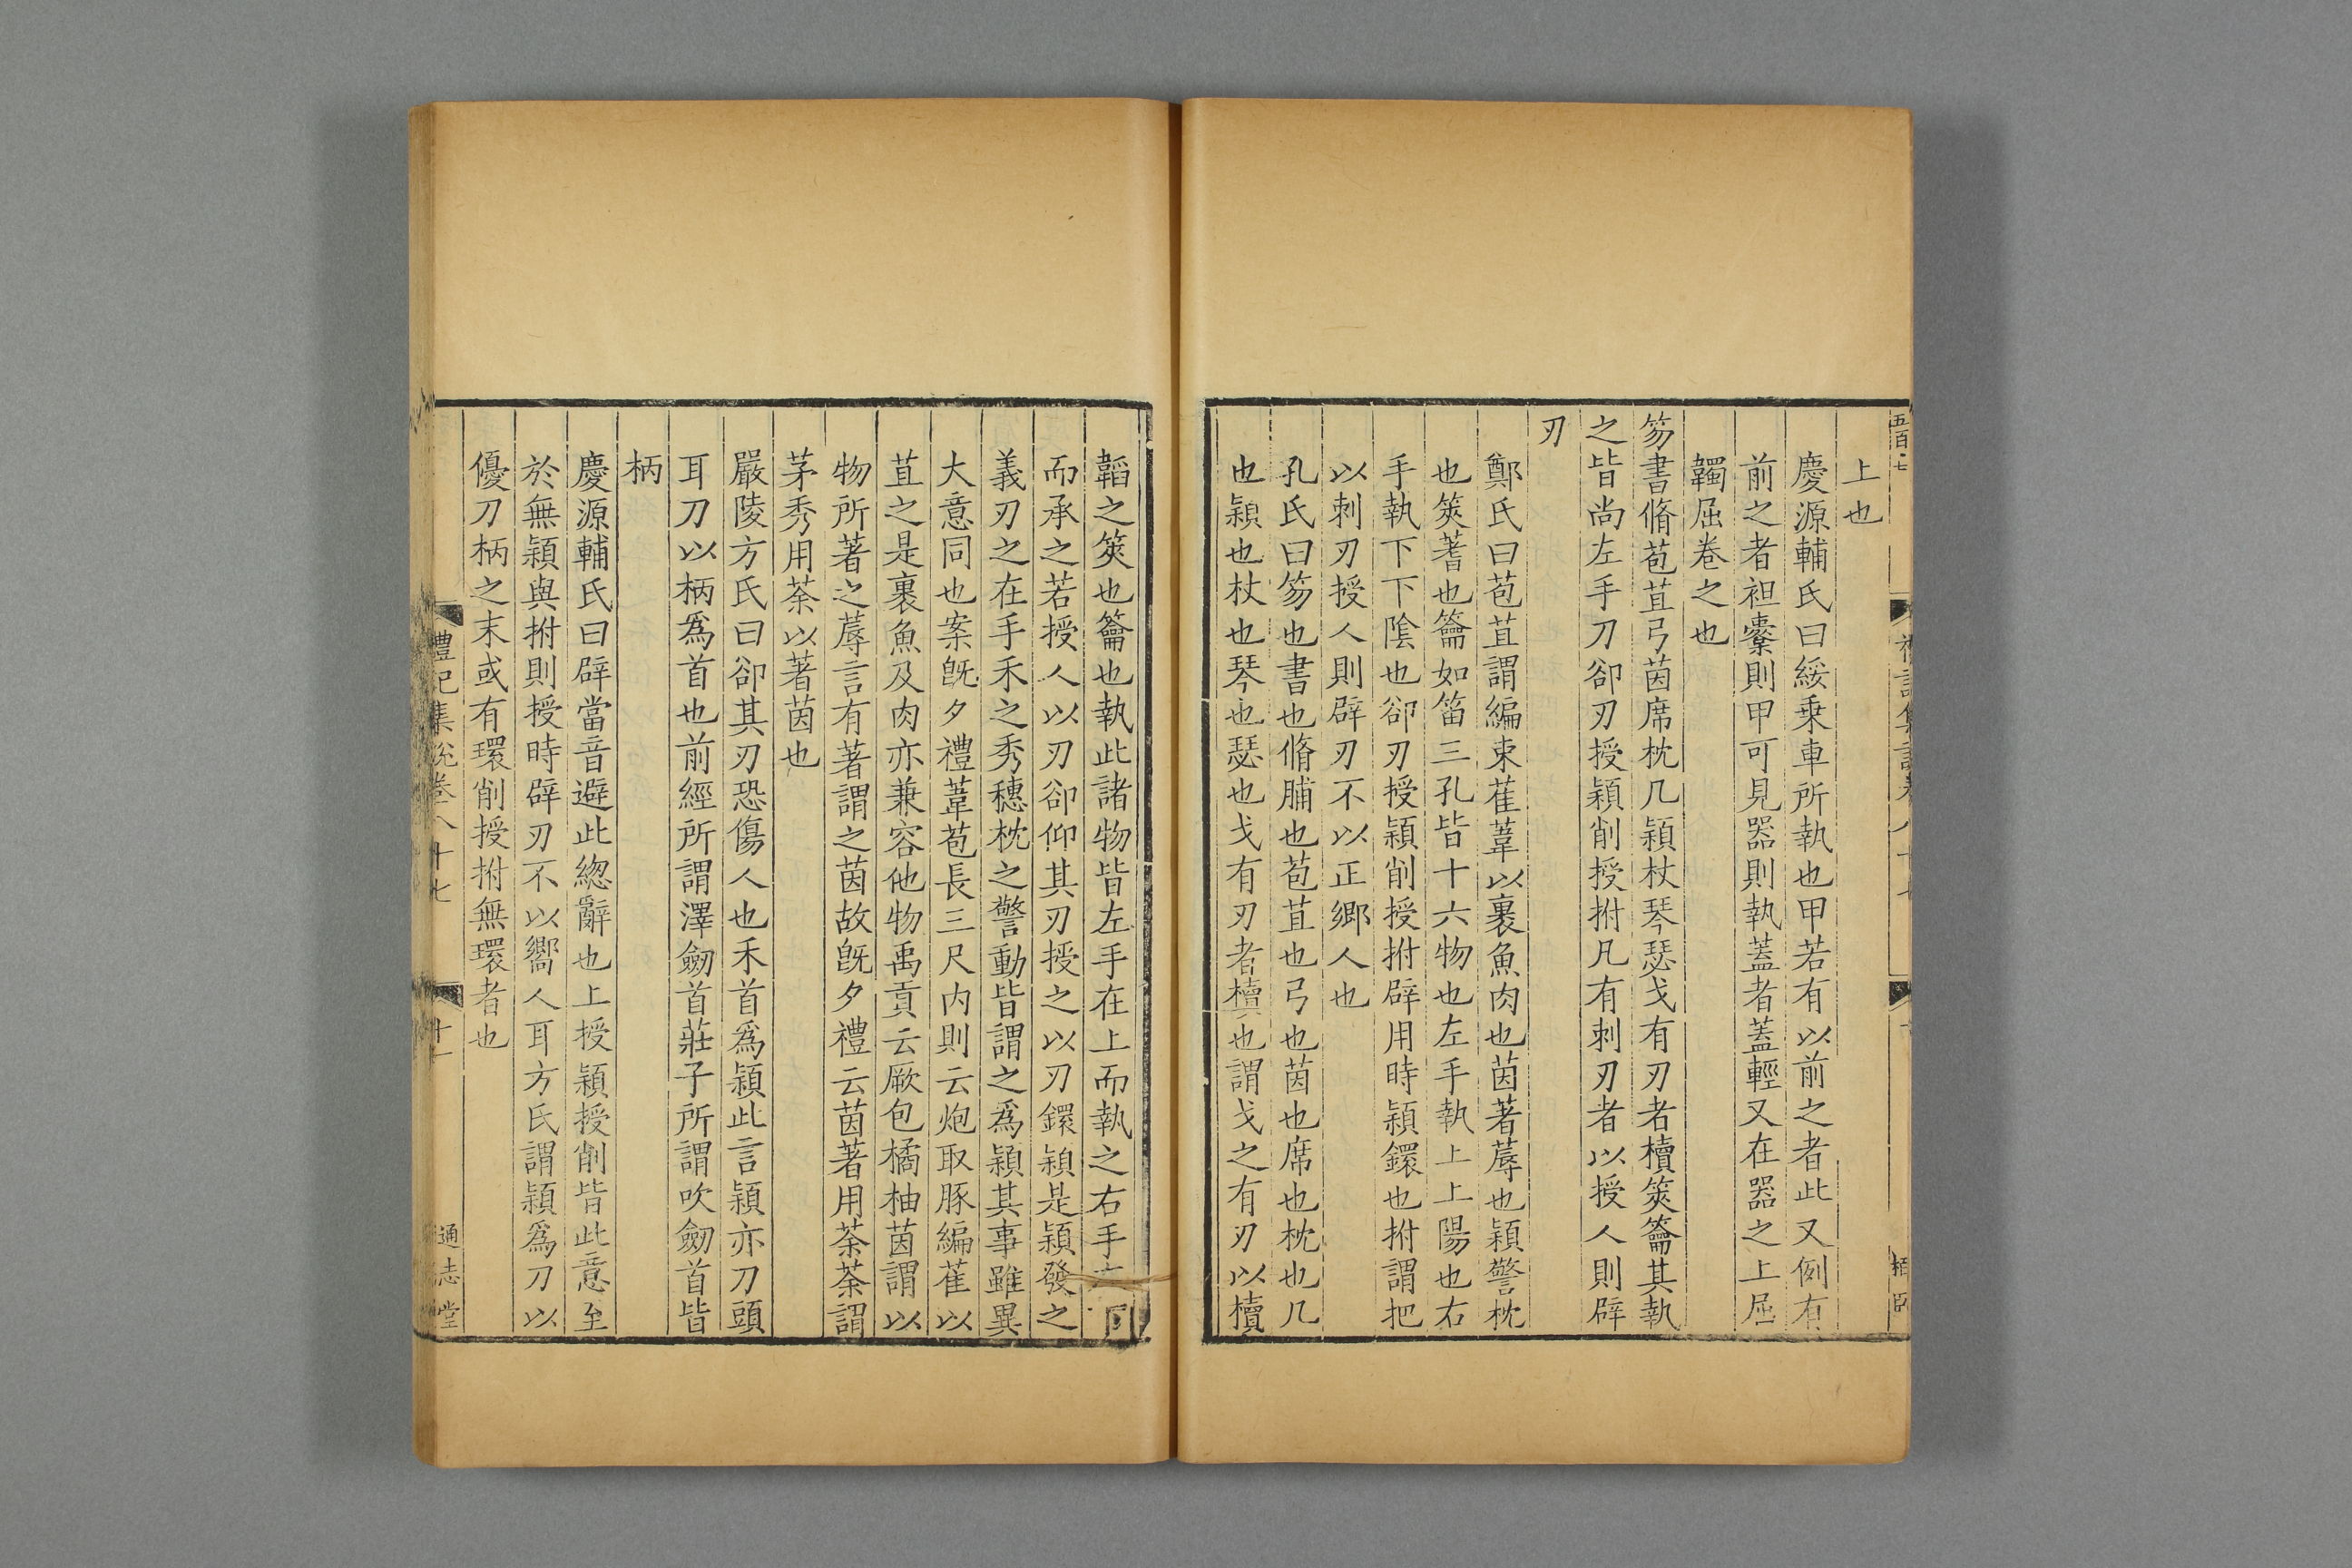 上也
慶源輔氏曰綏乗車所執也甲若有以前之者此又例有
前之者袒櫜則甲可見器則執蓋者蓋輕又在器之上屈
韣屈卷之也
笏書脩苞苴弓茵席枕几熲杖琴瑟戈有刃者櫝筴籥其執
之皆尚左手刀卻刃授穎削授拊凡有刺刃者以授人則辟
刃
鄭氏曰苞苴謂編束萑葦以裹魚肉也茵著蓐也穎警枕
也筴蓍也籥如笛三孔皆十六物也左手執上上陽也右
手執下下陰也卻刃授穎削授拊辟用時穎鐶也拊謂把
以刺刃授人則辟刃不以正鄉人也
孔氏曰笏也書也脩脯也苞苴也弓也茵也席也枕也几
也穎也杖也琴也瑟也戈有刃者櫝也謂戈之有刃以櫝
韜之筴也籥也執此諸物皆左手在上而執之右手
而承之若授人以刃卻仰其刃授之以刃鐶穎是穎發之
義刃之在手禾之秀穗枕之警動皆謂之爲穎其事雖異
大意同也案旣夕禮葦苞長三尺内則云炮取豚編萑以
苴之是裹魚及肉亦兼容他物禹貢云厥包橘柚茵謂以
物所著之蓐言有著謂之茵故旣夕禮云茵著用荼荼謂
茅秀用荼以著茵也
嚴陵方氏曰卻其刃恐傷人也禾首爲穎此言穎亦刀頭
耳刀以柄爲首也前經所謂澤劒首莊子所謂吹劒首皆
柄
慶源輔氏曰辟當音避此緫辭也上授穎授削皆此意至
於無穎與拊則授時辟刃不以嚮人耳方氏謂穎爲刀以
優刀柄之末或有環削授拊無環者也
禮記集說卷八十七
十一
通志堂